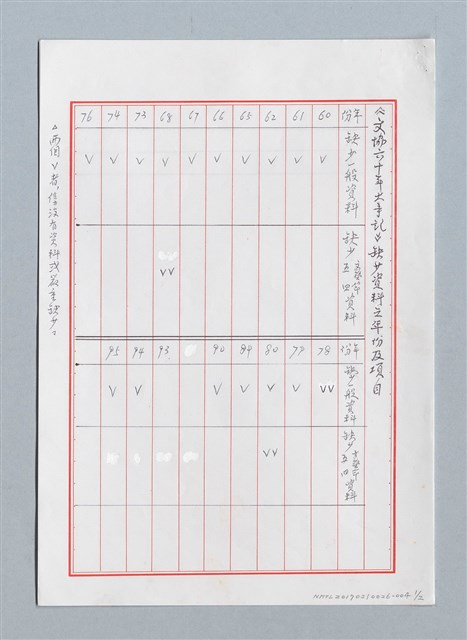 《文協六十年大事記》缺少資料之年份及項目
年份 60 61 62 65 66 67 68 73 74 76
缺少一般資料 V V V V V V V V V V
缺少五四文藝節資料 VV
年份 78 79 80 84 90 93 94 95
缺少一般資料 VV V V V V V V
缺少五四文藝節資料 VV
△兩個V者,係沒有資料或嚴重缺少。
NMTL20170210006-004 1/2